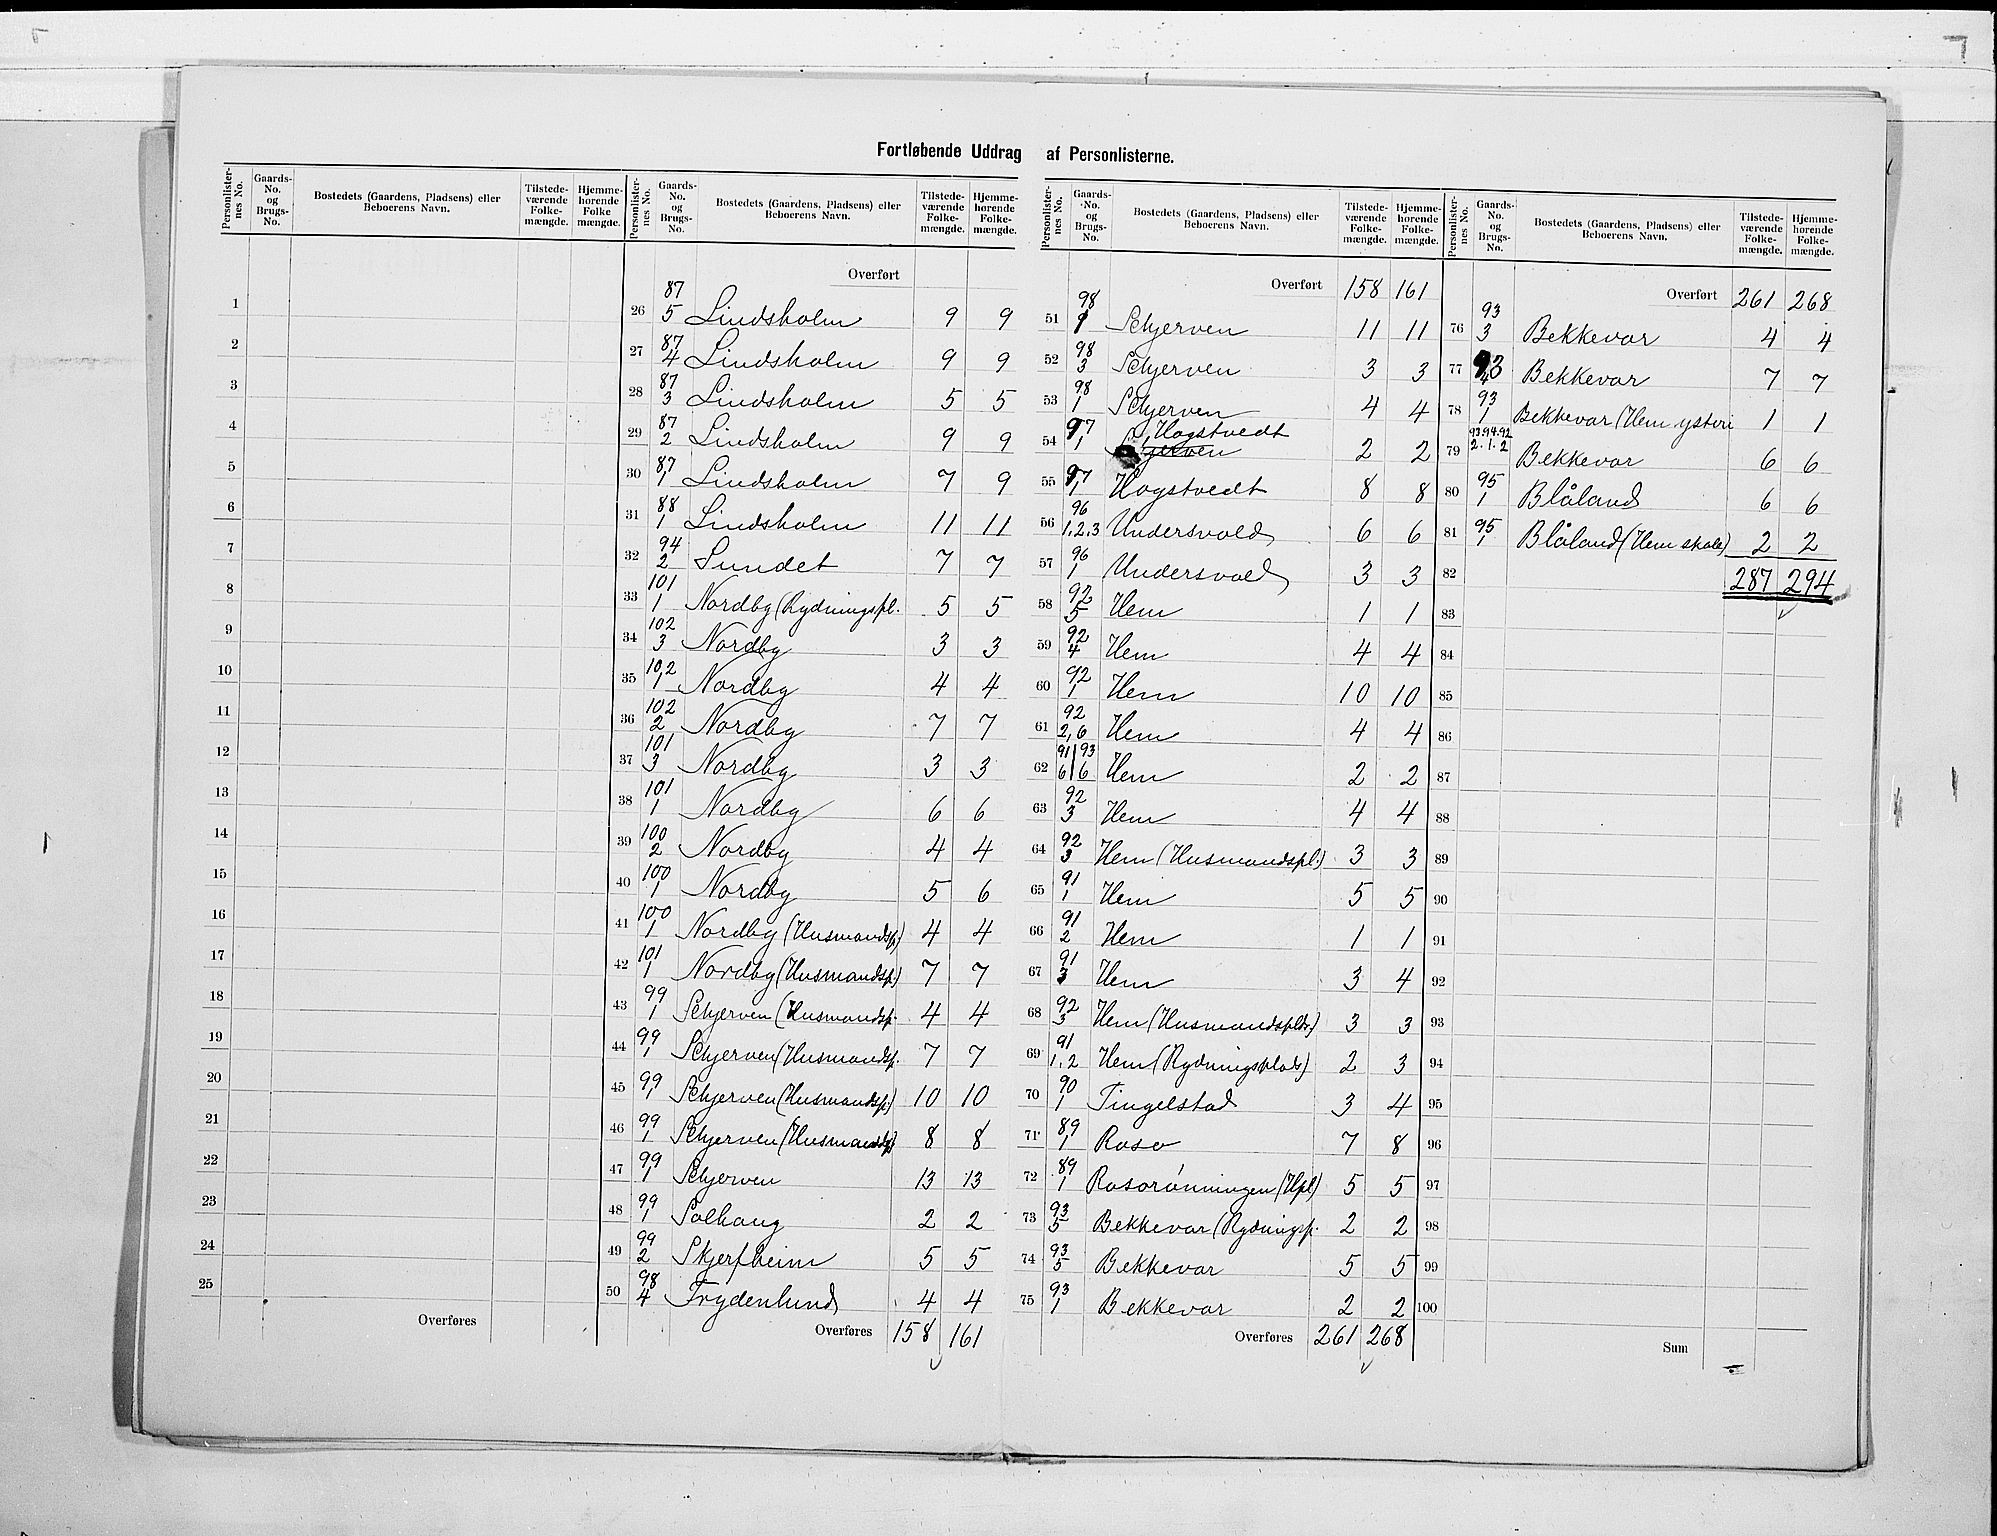 Fortløbende Uddrag af Personlisterne.
Personlisternes No. Gaards-No. og Brugs-No. Bostedets (Gaardens, Pladsens) eller Beboerens Navn. Tilstedeværende Folkemængde. Hjemmehørende Folkemængde.
1
2
3
4
5
6
7
8
9
10
11
12
13
14
15
16
17
18
19
20
21
22
23
24
25
Overføres
Personlisternes No. Gaards-No. og Brugs-No. Bostedets (Gaardens, Pladsens) eller Beboerens Navn. Tilstedeværende Folkemængde. Hjemmehørende Folkemængde.
Overført
26 87/5 Lindsholm 9 9
27 87/4 Lindsholm 9 9
28 87/3 Lindsholm 5 5
29 87/2 Lindsholm 9 9
30 87/1 Lindsholm 7 9
31 88/1 Lindsholm 11 11
32 94/2 Lundet 7 7
33 101/1 Nordby (Rydningspl. 5 5
34 102/3 Nordby 3 3
35 102/1 Nordby 4 4
36 102/2 Nordby 7 7
37 101/3 Nordby 3 3
38 101/1 Nordby 6 6
39 100/2 Nordby 4 4
40 100/1 Nordby 5 6
41 100/1 Nordby (Husmandsp.) 4 4
42 101/1 Nordby (Husmandsp.) 7 7
43 99/1 Schjerven (Husmandsp. 4 4
44 99/1 Schjerven (Husmandsp. 7 7
45 99/1 Schjerven (Husmandsp.) 10 10
46 99/1 Schjerven (Husmandsp) 8 8
47 99/1 Schjerven 13 13
48 99/1 Solhaug 2 2
49 99/2 Skjerfheim 5 5
50 98/4 Frydenlund 4 4
Overføres 158 161
Personlisternes No. Gaards-No. og Brugs-No. Bostedets (Gaardens, Pladsens) eller Beboerens Navn. Tilstedeværende Folkemængde. Hjemmehørende Folkemængde.
Overført 158 161
51 98 Schjerven 11 11
52 98/3 Schjerven 3 3
53 98/1 Schjerven 4 4
54 97/1 Hogstvedt 2 2
55 97/1 Hogstvedt 8 8
56 96/1.2.3 Undersvold 6 6
57 96/1 Undersvold 3 3
58 92/5 Hem 1 1
59 92/4 Hem 4 4
60 92/1 Hem 10 10
61 92/2,6 Hem 4 4
62 91/6 93/6 Hem 2 2
63 92/3 Hem 4 4
64 92/3 Hem (Husmandspl.) 3 3
65 91/1 Hem 5 5
66 91/2 Hem 1 1
67 91/3 Hem 3 4
68 92/3 Hem (Husmandsplds.) 3 3
69 91/1.2 Hem (Rydningsplads) 2 3
70 90/1 Tingelstad 3 4
71 89/1 Roso 7 8
72 89/1 Rosorønningen (Hpl) 5 5
73 93/5 Bekkevar (Rydningsp. 2 2
74 93/5 Bekkevar 5 5
75 93/1 Bekkevar 2 2
Overføres 261 268
Personlisternes No. Gaards-No. og Brugs-No. Bostedets (Gaardens, Pladsens) eller Beboerens Navn. Tilstedeværende Folkemængde. Hjemmehørende Folkemængde.
Overført 261 268
76 93/3 Bekkevar 4 4
77 93/4 Bekkevar 7 7
78 93/1 Bekkevar (Hem ysteri 1 1
79 93.94.92 2.1.2 Bekkevar 6 6
80 95/1 Blåland 6 6
81 95/1 Blåland (Hem skole) 2 2
82 287 294
83
84
85
86
87
88
89
90
91
92
93
94
95
96
97
98
99
100
Sum